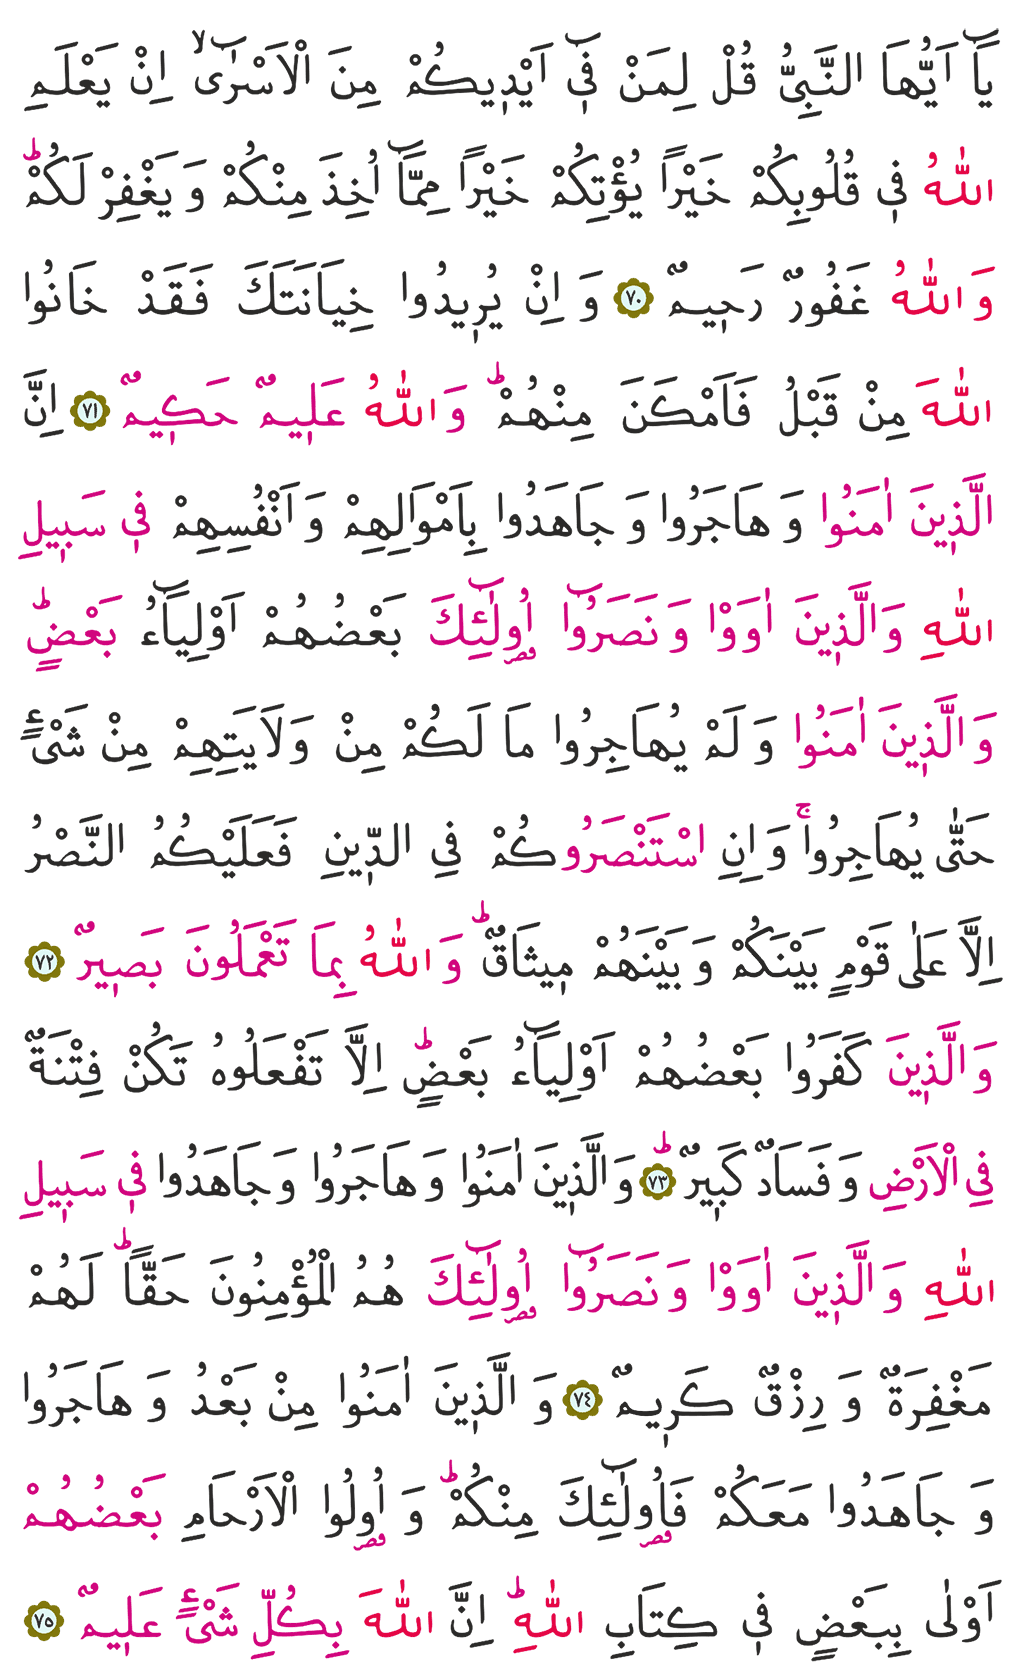 يَٓا اَيُّهَا النَّبِىُّ قُلْ لِمَنْ فٖٓى اَيْدٖيكُمْ مِنَ الْاَسْرٰٓىۙ اِنْ يَعْلَمِ
اللّٰهُ فٖى قُلُوبِكُمْ خَيْرًا يُؤْتِكُمْ خَيْرًا مِمَّٓا اُخِذَ مِنْكُمْ وَ يَغْفِرْ لَكُمْؕ
وَ اللّٰهُ غَفُورٌ رَحٖيمٌ ﴿٧٠﴾ وَ اِنْ يُرٖيدُوا خِيَانَتَكَ فَقَدْ خَانُوا
اللّٰهَ مِنْ قَبْلُ فَاَمْكَنَ مِنْهُمْؕ وَ اللّٰهُ عَلٖيمٌ حَكٖيمٌ ﴿٧١﴾ اِنَّ
الَّذٖينَ اٰمَنُوا وَ هَاجَرُوا وَ جَاهَدُوا بِاَمْوَالِهِمْ وَ اَنْفُسِهِمْ فٖى سَبٖيلِ
اللّٰهِ وَ الَّذٖينَ اٰوَوْا وَ نَصَرُٓوا اُولٰٓئِكَ بَعْضُهُمْ اَوْلِيَٓاءُ بَعْضٍؕ
وَ الَّذٖينَ اٰمَنُوا وَ لَمْ يُهَاجِرُوا مَا لَكُمْ مِنْ وَلَايَتِهِمْ مِنْ شَىْءٍ
حَتّٰى يُهَاجِرُواۚ وَ اِنِ اسْتَنْصَرُوكُمْ فِى الدّٖينِ فَعَلَيْكُمُ النَّصْرُ
اِلَّا عَلٰى قَوْمٍ بَيْنَكُمْ وَ بَيْنَهُمْ مٖيثَاقٌؕ وَ اللّٰهُ بِمَا تَعْمَلُونَ بَصٖيرٌ ﴿٧٢﴾
وَ الَّذٖينَ كَفَرُوا بَعْضُهُمْ اَوْلِيَٓاءُ بَعْضٍؕ اِلَّا تَفْعَلُوهُ تَكُنْ فِتْنَةٌ
فِى الْاَرْضِ وَ فَسَادٌ كَبٖيرٌؕ ﴿٧٣﴾ وَ الَّذٖينَ اٰمَنُوا وَ هَاجَرُوا وَ جَاهَدُوا فٖى سَبٖيلِ
اللّٰهِ وَ الَّذٖينَ اٰوَوْا وَ نَصَرُٓوا اُولٰٓئِكَ هُمُ الْمُؤْمِنُونَ حَقًّاؕ لَهُمْ
مَغْفِرَةٌ وَ رِزْقٌ كَرٖيمٌ ﴿٧٤﴾ وَ الَّذٖينَ اٰمَنُوا مِنْ بَعْدُ وَ هَاجَرُوا
وَ جَاهَدُوا مَعَكُمْ فَاُولٰٓئِكَ مِنْكُمْؕ وَ اُولُوا الْاَرْحَامِ بَعْضُهُمْ
اَوْلٰى بِبَعْضٍ فٖى كِتَابِ اللّٰهِؕ اِنَّ اللّٰهَ بِكُلِّ شَىْءٍ عَلٖيمٌ ﴿٧٥﴾